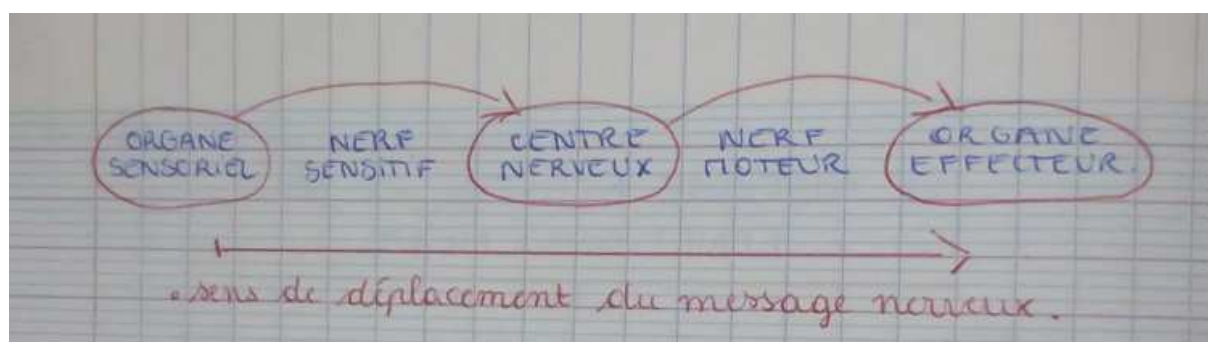 ORGANE SENSORIEL
NERF SENSITIF
CENTRE NERVEUX
NERF MOTEUR
ORGANE EFFECTEUR.
sens de déplacement du message nerveux.